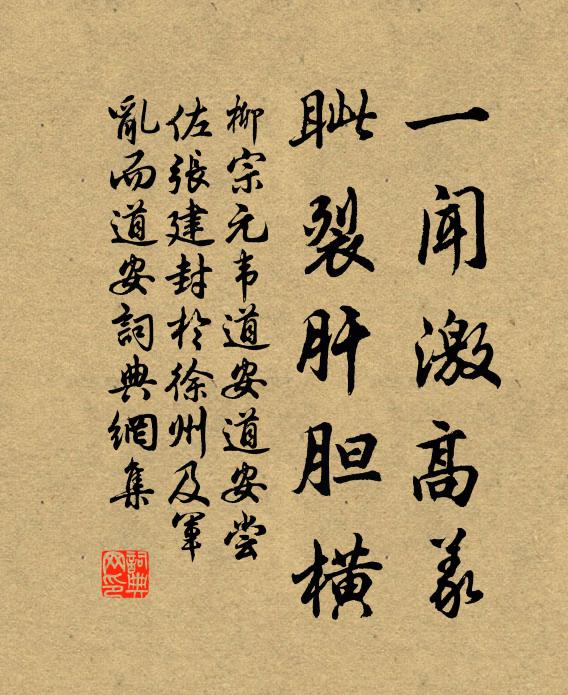 一闻激高义
眦裂肝胆横
柳宗元韦道安道安尝
佐張建封於徐州及军
亂而道安詞典網集
詞典网印